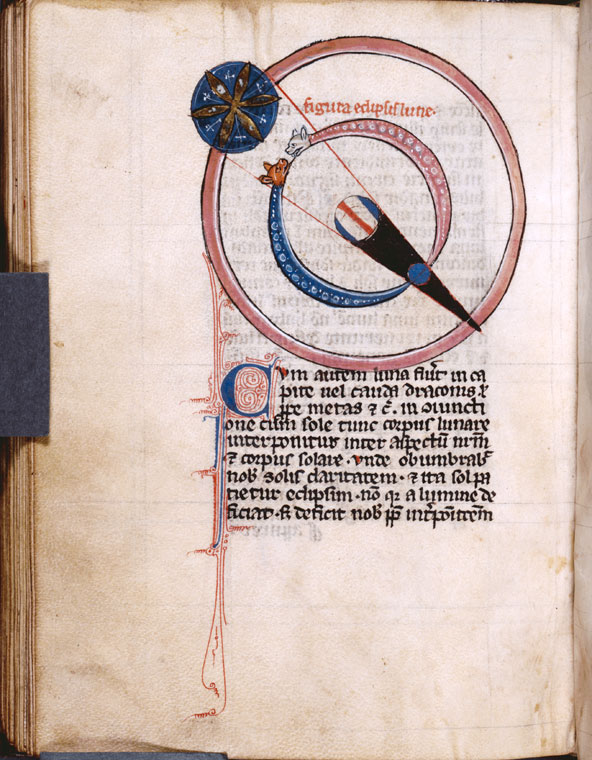 figura eclipsis lune.
Cum autem luna fiūt in ca
pite uel cauda draconis ł
ꝓpe metas ⁊ c̄. in ↄiuncti
one cum sole tunc corpus lunare
interponitur inter aspectū nr̄m
⁊ corpus solare. vnde obumbrabͭ
nob̾ solis claritatem. ⁊ ita sol pa
tietur eclipsim. nō qr a lumine de
ficiat. sꝫ deficit nob̾ ꝓp̄ int̾pōitōem